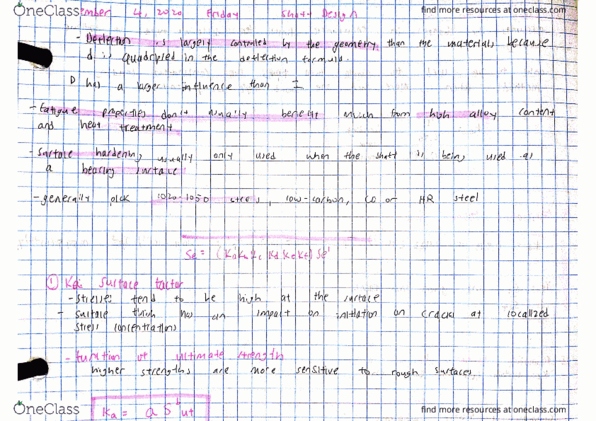 OneClass
find more resources at oneclass.com
4, 2020 Friday Shaft Design
- Deflection is largely controlled by the geometry than the materials because
d is quadrupled in the deflection formula.
D has a larger influence than I
- fatigue properties don't usually benefit much from high alloy content
and heat treatment
- Surface hardening usually only used when the shaft is being used as
a bearing surface
- generally pick 1020-1050 steels, low-carbon, CD or HR steel
Se = (Ka Kb Kc Kd Ke Kf) Se'
① Ka: Surface factor
- stresses tend to be high at the surface
- surface finish has an impact on initiation on cracks at localized
stress concentrations
- function of ultimate strength
higher strengths are more sensitive to rough surfaces
OneClass
Ka = a S^b ut
find more resources at oneclass.com